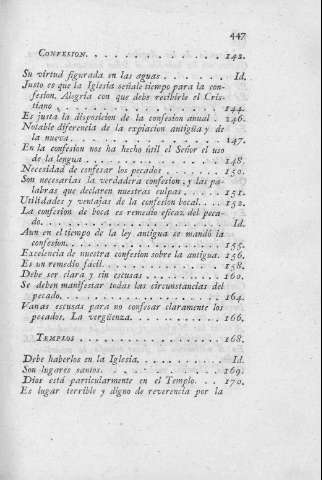 447
CONFESION. . . . . . . . . . . . . . 142.
Su virtud figurada en las aguas . . . . . . Id.
Justo es que la Iglesia señale tiempo para la con-
fesion. Alegría con que debe recibirle el Cris-
tiano . . . . . . . . . . . . . . . . 144.
Es justa la disposicion de la confesion anual . 146.
Notable diferencia de la expiacion antigüa y de
la nueva. . . . . . . . . . . . . . . 147.
En la confesion nos ha hecho útil el Señor el uso
de la lengua . . . . . . . . . . . . . 148.
Necesidad de confesar los pecados . . . . . 150.
Son necesarias la verdadera confesion, y las pa-
labras que declaren nuestras culpas. . . . . 151.
Utilidades y ventajas de la confesion bocal. . . 152.
La confesion de boca es remedio eficaz del peca-
do. . . . . . . . . . . . . . . . . . Id.
Aun en el tiempo de la ley antigua se mandó la
confesion. . . . . . . . . . . . . . . 155.
Excelencia de nuestra confesion sobre la antigua. 156.
Es un remedio fácil. . . . . . . . . . . 158.
Debe ser clara y sin escusas . . . . . . . 160.
Se deben manifestar todas las circunstancias del
pecado. . . . . . . . . . . . . . . . 164.
Vanas escusas para no confesar claramente los
pecados. La vergüenza. . . . . . . . . . 166.
TEMPLOS . . . . . . . . . . . . . . 168.
Debe haberlos en la Iglesia. . . . . . . . Id.
Son lugares santos. . . . . . . . . . . 169.
Dios está particularmente en el Templo. . . 170.
Es lugar terrible y digno de reverencia por la